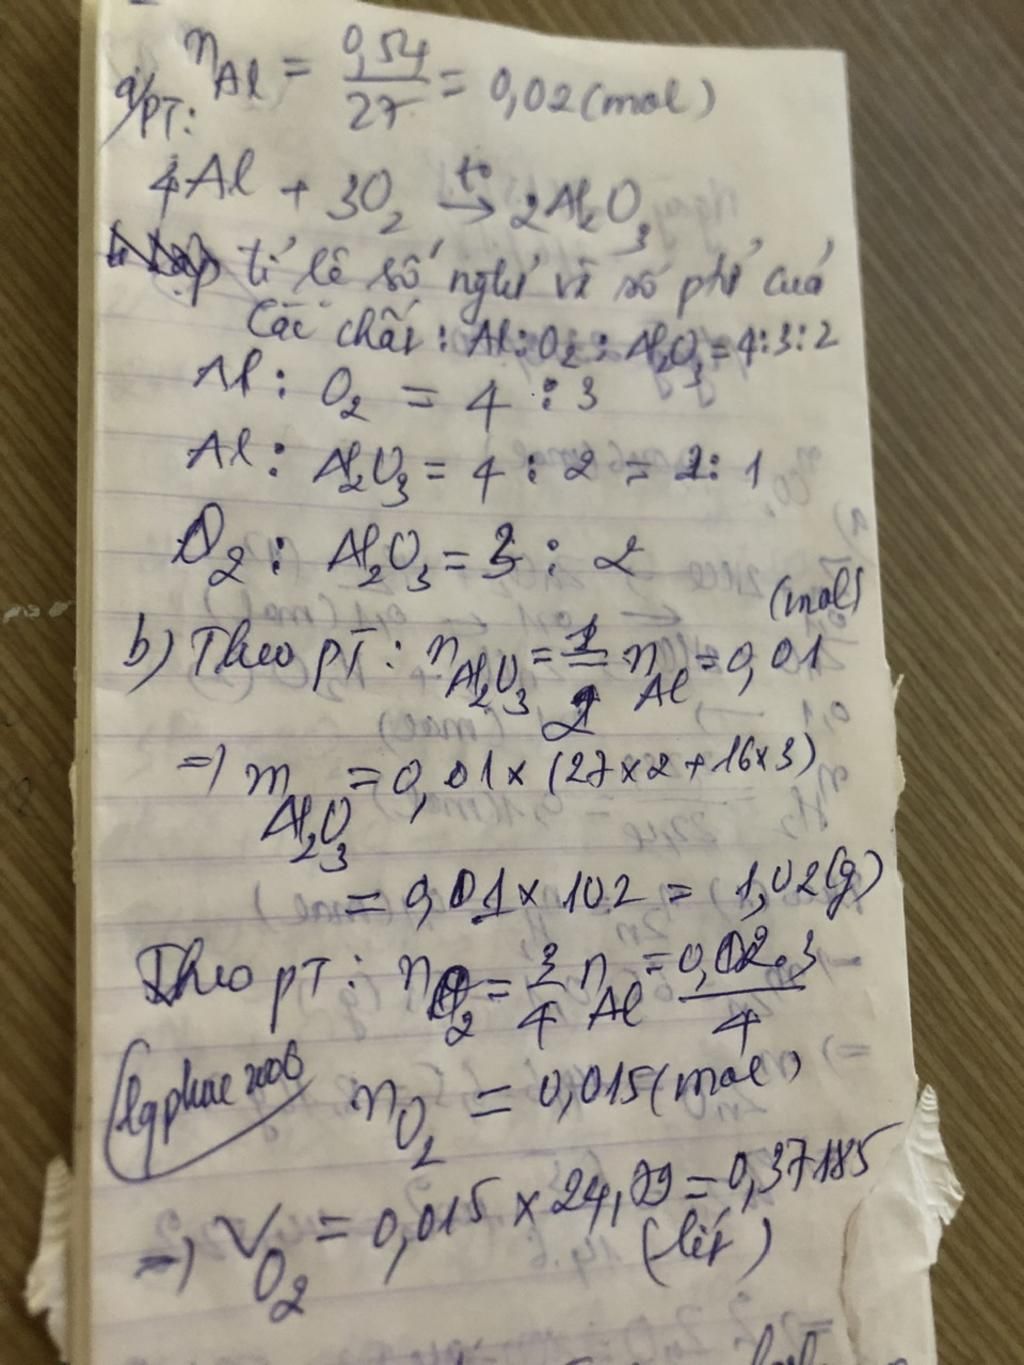 nAl = 0,54/27 = 0,02 (mol)
a/PT:
4Al + 3O2 t° → 2Al2O3
tỉ lệ số ngtử và số ptử của
Các chất : Al : O2 : Al2O3 = 4 : 3 : 2
Al : O2 = 4 : 3
Al : Al2O3 = 4 : 2 = 2 : 1
O2 : Al2O3 = 3 : 2
b) Theo PT : nAl2O3 = 1/2 nAl = 0,01 (mol)
=> mAl2O3 = 0,01 x (27x2 + 16x3)
= 0,01 x 102 = 1,02 (g)
Theo PT : nO2 = 3/4 nAl = 0,02.3/4
lqphuc2006
nO2 = 0,015 (mol)
=> VO2 = 0,015 x 24,79 = 0,37185
(lít)